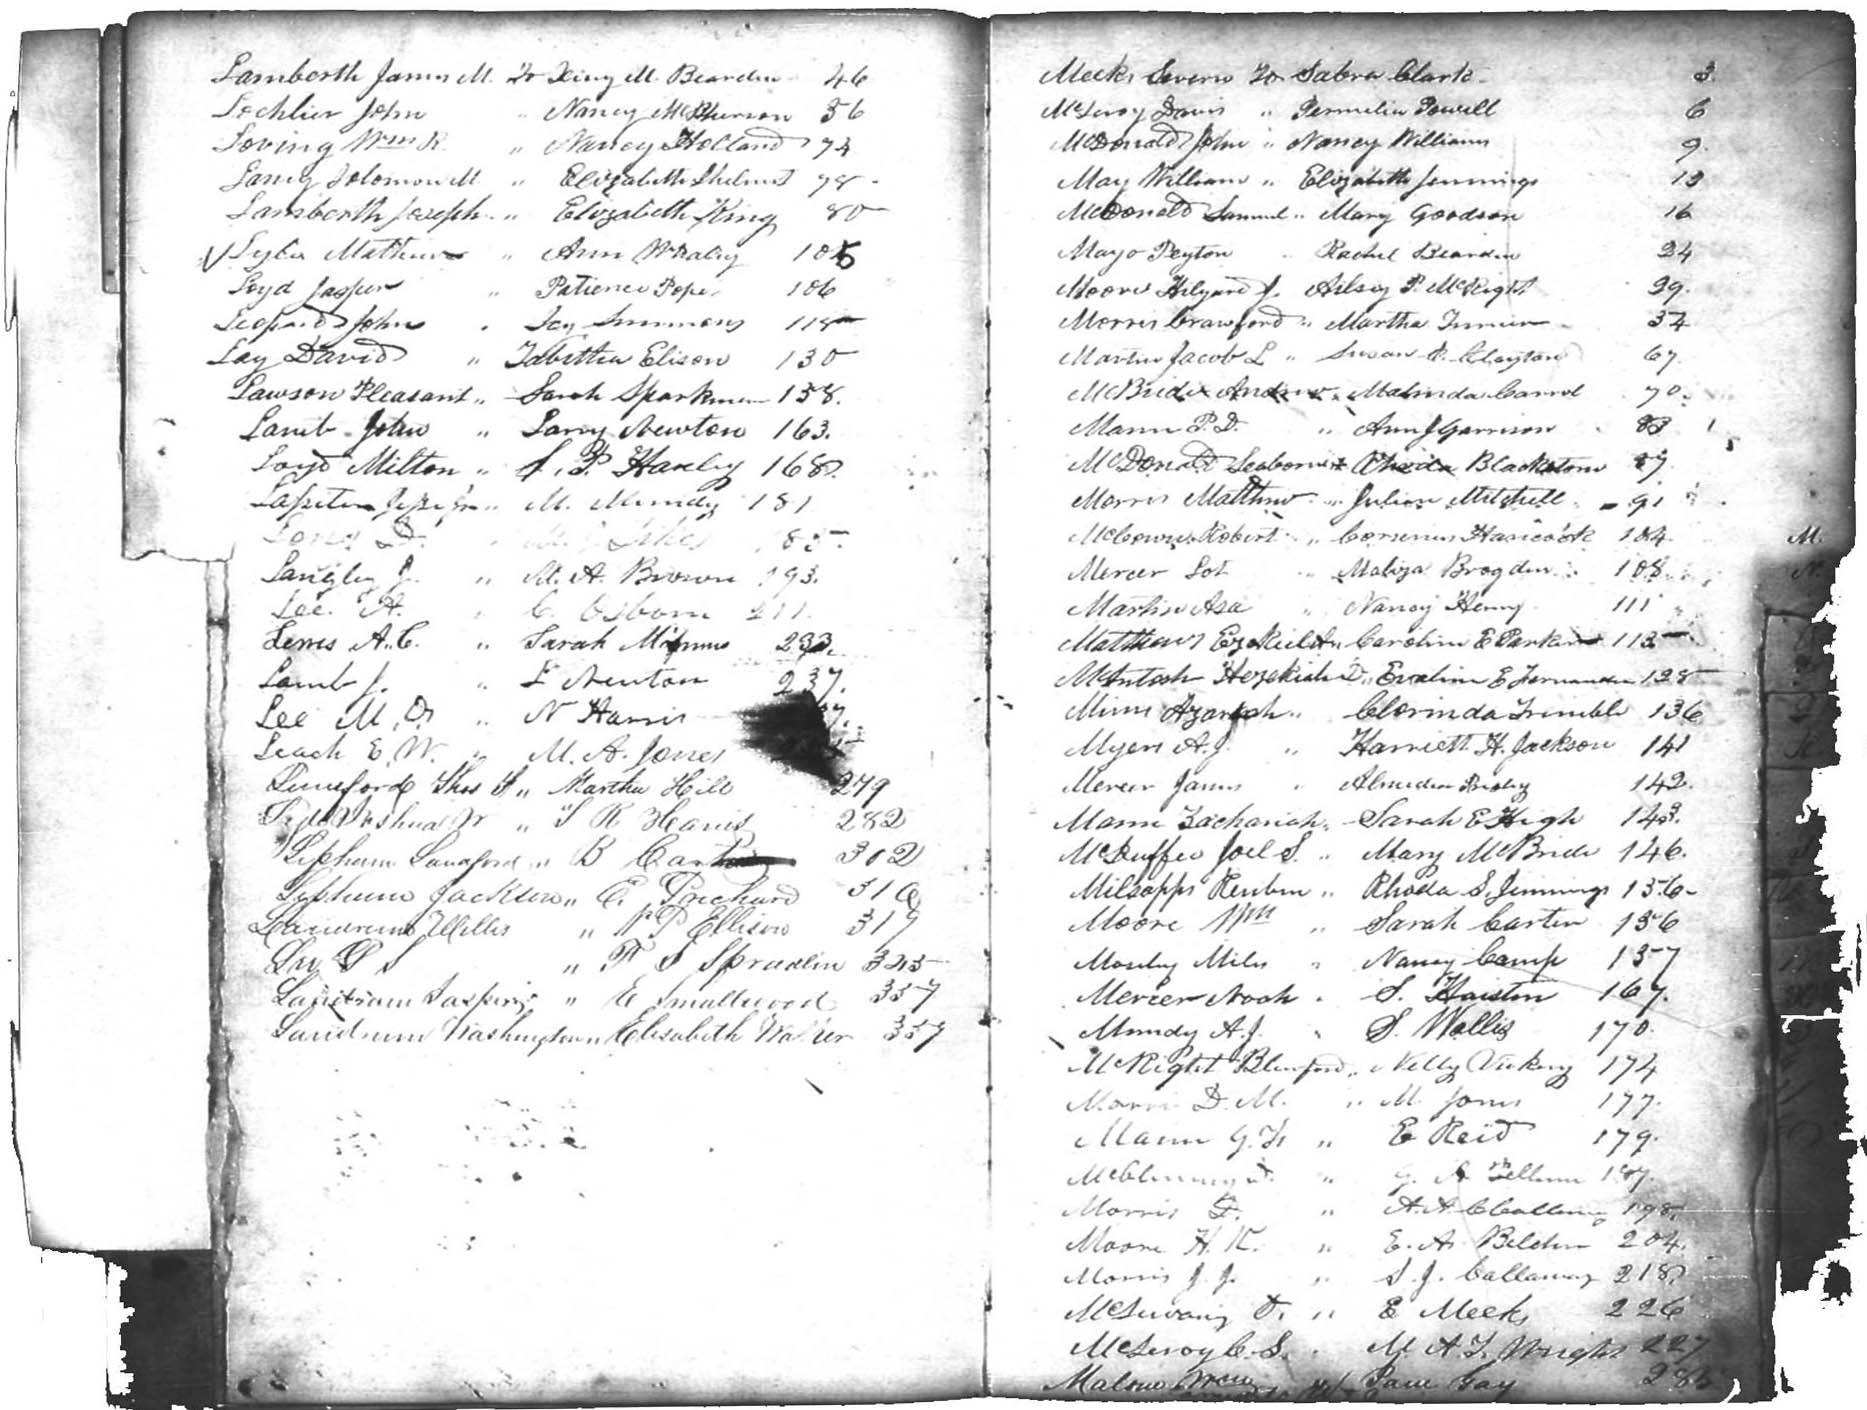 Lamberth James M. To Xiny M. Bearden 46
Lochlier John " Nancy McPherson 56
Loving Wm R. " Nancy Holland 74
Laney Solomon M. " Elizabeth Shelnut 78
Lamberth Joseph " Elizabeth King 80
Lyler Mathew " Ann Whaley 105
Loyd Jasper " Patience Pope 106
Leopard John " Icy Simmons 118
Lay David " Tabitha Elison 130
Lawson Pleasant " Sarah Sparkman 158.
Lamb John " Larry Newton 163.
Loyd Milton " S. P. Hanley 168.
" M. Mundy 181
Long D. " 185
Langley J. " M. A. Brown 193.
Lee A. " C. Osborn 211.
Lewis A. C. " Sarah 233.
Lamb J. " F Newton 237.
Lee M. D. " N Harris
Leach E. W. " M. A. Jones
Lunsford Thos S " Martha Hill 279
Joshua W " S R Harris 282
Lipham Langford " B 302
Lipham Jackson " E. Prichard 316
Landrum Willis " P Ellison 319
P S " F S Spradlin 325
Landrum " E Smallwood 337
Landrum Washington " Elisabeth Walker 337
Meeks Severn To Sabra Clark 3.
McLeroy Davis " Permelia Powell 6
McDonald John " Nancy Williams 9.
May William " Elizabeth Jennings 13
McDonald Samuel " Mary Goodson 16
Mayo Peyton " Rachel Bearden 24
Moore Hilyard J. Ailsey P. McRight 29.
Morris Crawford " Martha 34
Martin Jacob L " Susan E. Clayton 67.
McBride Andrew " Malinda Carrol 70.
Mann P. D. " Ann J Garrison 83
McDonald Seaborn " Rhoda Blackstone 87
Morris Matthew " Julian Mitchell 91
McCowns Robert " Hancock 104
M.
Mercer Lot " Maliza Brogden 108
N.
Martin Asa " Nancy Henry 111
Matthews Ezekiel A " Caroline E Parker 113
McIntosh Hezekiah D " Evaline E Fernander 128
Mims Azariah " Clorinda Trimble 136
Myers A. J. " Harriett H. Jackson 141
Mercer James " Almeda 142.
Mann Zachariah " Sarah E High 143.
McDuffee Joel S. " Mary McBride 146.
Milsapps Reubin " Rhoda S. Jennings 156
Moore Wm " Sarah Carter 156
Mosley Miles " Nancy Camp 157
Mercer Noah " S. Haistin 167.
Mundy A. J. " S. Wallis 170.
McRight Blanford " Nelly Vickery 174
Morris D. M. " M Jones 177.
Mann G. W " E Reid 179.
" G. A 187.
Morris D. " A. A. Callaway 198.
Moore H. K. " E. A. Belden 204.
Morris J. J. " S. J. Callaway 218
McElwaney D. " E Meeks 226
McLeroy C. S. " M. A. T. Wright 227
Malone Wm Jane Gay 286